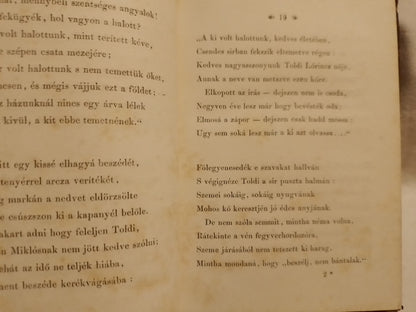 mennybeli szentséges angyalok!
fekügyék, hol vagyon a halott?
volt halottunk, mint terített kéve,
e szépen csata mezejére;
r volt halottunk s nem temettük őket,
nesen, és mégis vájjuk ezt a földet:
házunknál nincs egy árva lélek
kivül, a kit ebbe temetnének."
itt egy kissé elhagyá beszédét,
tenyérrel arcza veritékét,
g markán a nedvet eldörzsölte
e csúszszon ki a kapanyél belőle.
akart adni hogy feleljen Toldi,
n Miklósnak nem jött kedve szólni;
ehát az idő ne teljék hiába,
ment beszéde kerékvágásába:
19
„A ki volt halottunk, kedves életében,
Csendes sirban fekszik eltemetve régen:
Kedves nagyasszonyunk Toldi Lőrincz nője,
Annak a neve van metszve ezen kőre.
Elkopott az irás — dejszen nem is csoda,
Negyven éve lesz már hogy bevésték oda:
Elmosá a zápor — dejszen csak hadd mossa:
Ugy sem soká lesz már a ki azt olvassa...."
Fölegyenesedék e szavakat hallván
S végignéze Toldi a sir puszta halmán:
Szemei sokáig, sokáig nyugvának
Mohos kő keresztjén jó édes anyjának.
De nem szóla semmit, mintha néma volna,
Rátekinte a vén fegyverhordozóra,
Szeme járásából nem tetszett ki harag,
Mintha mondaná, hogy „beszélj, nem bántalak."
2 *